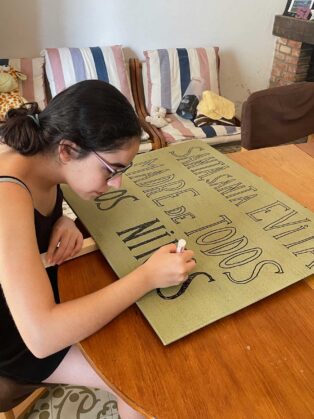 SANA, SANTA EVITA
MADRE DE TODOS
LOS NIÑOS